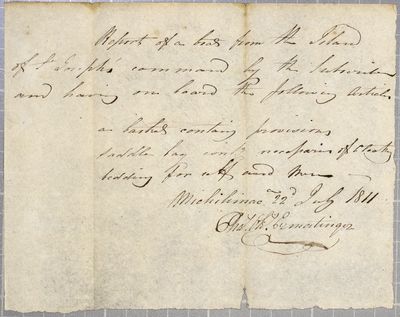 Report of a boat from the Island
of St Joseph's command by the Subscriber
and having one board the following Articles
a basket containg provisions
saddle bag with necessaries of Cloathg
bedding for self and Men
Michilimac 22d July 1811
Ermatinger